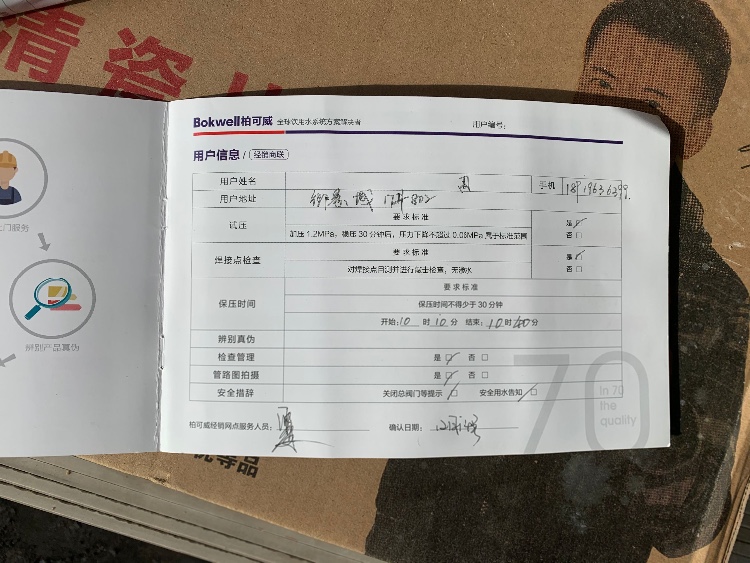 清瓷
上门服务
辨别产品真伪
Bokwell柏可威 全球饮用水系统方案解决者 用户编号：
用户信息 / 经销商联
用户姓名 周 手机
用户地址
试压 要求标准 是
加压 1.2MPa，稳压 30 分钟后，压力下降不超过 0.06MPa 属于标准范围 否
焊接点检查 要求标准 是
对焊接点目测并进行敲击检查，无渗水 否
保压时间 要求标准
保压时间不得少于 30 分钟
开始：10 时 10 分 结束：10 时 40 分
辨别真伪
检查管理 是 否
管路图拍摄 是 否
安全措辞 关闭总阀门等提示 安全用水告知
柏可威经销网点服务人员： 确认日期：
70
In 70
the
quality
等品